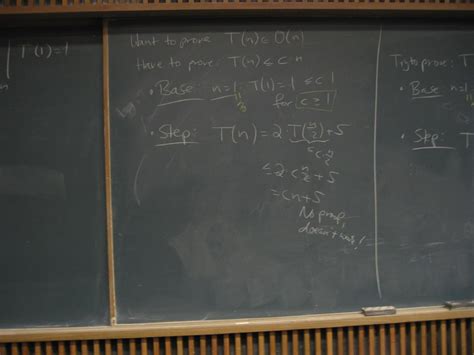 T(1)=1
n
Want to prove T(n) ∈ O(n)
Have to prove: T(n) ≤ c·n
• Base: n=1: T(1)=1 ≤ c·1
for c≥1
• Step: T(n) = 2·T(n/2)+5
≤ c·n/2
≤ 2·c n/2 + 5
= cn+5
No proof,
doesn't work!
Try to prove: T
• Base n
• Step: